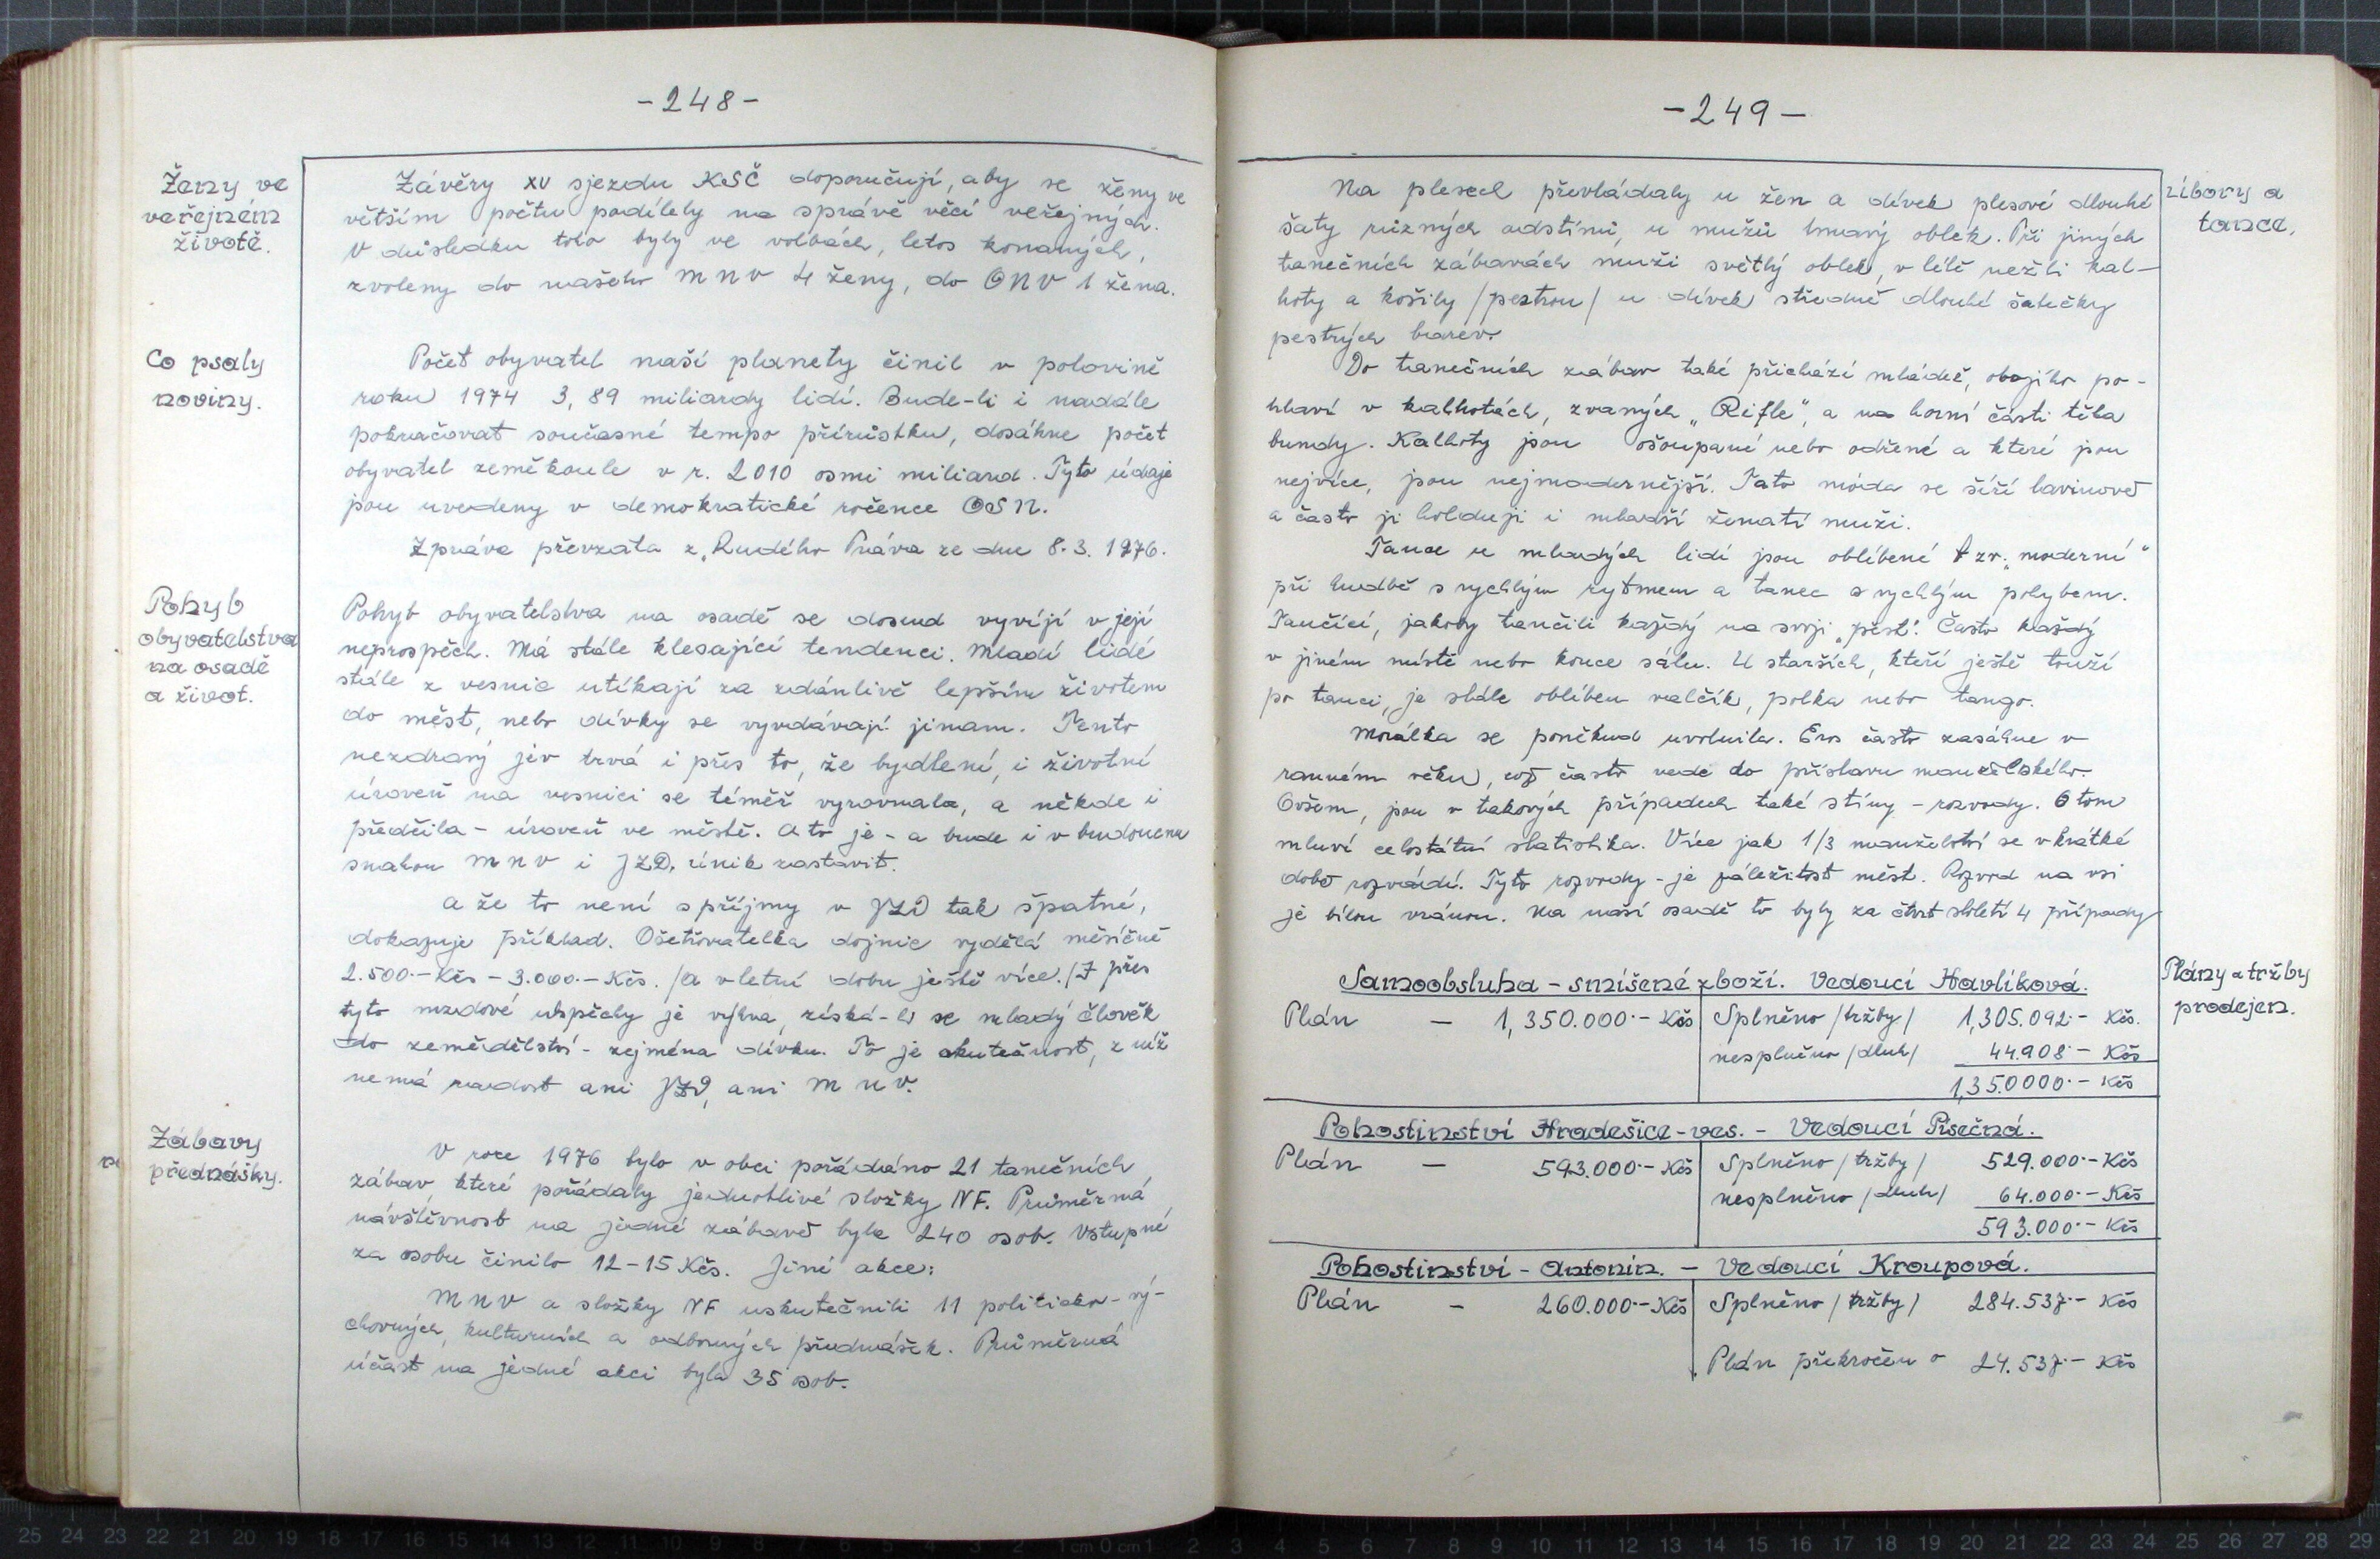 -248-
Ženy ve
veřejném
životě.
Závěry XV sjezdu KSČ doporučují, aby se ženy ve
větším počtu podílely na správě věcí veřejných.
V důsledku toho byly ve volbách, letos konaných,
zvoleny do našeho MNV 4 ženy, do ONV 1 žena.
Co psaly
noviny.
Počet obyvatel naší planety činil v polovině
roku 1974 3,89 miliardy lidí. Bude-li i nadále
pokračovat současné tempo přírůstku, dosáhne počet
obyvatel zeměkoule v r. 2010 osmi miliard. Tyto údaje
jsou uvedeny v demokratické ročence OSN.
Zpráva převzata z „Rudého Práva ze dne 8.3.1976.
Pohyb
obyvatelstva
na osadě
a život.
Pohyb obyvatelstva na osadě se dosud vyvíjí v její
neprospěch. Má stále klesající tendenci. Mladí lidé
stále z vesnic utíkají za zdánlivě lepším životem
do měst, nebo dívky se vyvdávají jinam. Tento
nezdravý jev trvá i přes to, že bydlení, i životní
úroveň na vesnici se téměř vyrovnala, a někde i
předčila - úroveň ve městě. A to je - a bude i v budoucnu
snahou MNV i JZD, únik zastavit.
A že to není s příjmy v JZD tak špatné,
dokazuje příklad. Ošetřovatelka dojnic vydělá měsíčně
2.500.- Kčs - 3.000.- Kčs. /A v letní dobu ještě více./ I přes
tyto mzdové úspěchy je výhra, získá-li se mladý člověk
do zemědělství - zejména dívku. To je skutečnost, z níž
nemá radost ani JZD, ani MNV.
Zábavy
přednášky.
V roce 1976 bylo v obci pořádáno 21 tanečních
zábav, které pořádaly jednotlivé složky NF. Průměrná
návštěvnost na jedné zábavě byla 240 osob. Vstupné
za osobu činilo 12-15 Kčs. Jiné akce:
MNV a složky NF uskutečnili 11 politicko-vý-
chovných, kulturních a odborných přednášek. Průměrná
účast na jedné akci byla 35 osob.
-249-
Na plesech převládaly u žen a dívek plesové dlouhé
šaty různých odstínů, u mužů tmavý oblek. Při jiných
tanečních zábavách muži světlý oblek, v létě nežli kal-
hoty a košily /pestrou/ u dívek středně dlouhé šatečky
pestrých barev.
tance.
Do tanečních zábav také přichází mládež, obojího po-
hlaví v kalhotách, zvaných „Rifle", a na horní části těla
bundy. Kalhoty jsou ošoupané nebo odřené a které jsou
nejvíce, jsou nejmodernější. Tato móda se šíří lavinově
a často ji holdují i mladší ženatí muži.
Tance u mladých lidí jsou oblíbené tzv. „moderní"
při hudbě s rychlým rytmem a tanec s rychlým pohybem.
Tančící, jakoby tančili každý na svoji „pěst". Často každý
v jiném místě nebo konce sálu. U starších, kteří ještě touží
po tanci, je stále oblíben valčík, polka nebo tango.
Morálka se poněkud uvolnila. Eros často zasáhne v
ranném věku, což často vede do přístavu manželského.
Ovšem, jsou v takových případech také stíny - rozvody. O tom
mluví celostátní statistika. Více jak 1/3 manželství se v krátké
době rozvádí. Tyto rozvody - je záležitost měst. Rozvod na vsi
je bílou vránou. Na naší osadě to byly za čtvrt století 4 případy
Plány a tržby
prodejen.
Samoobsluha - smíšené zboží. Vedoucí Havlíková.
Plán - 1,350.000.- Kčs Splněno /tržby/ 1,305.092.- Kčs.
nesplněno /dluh/ 44.908.- Kčs
1,350000.- Kčs
Pohostinství Hradešice-ves. - Vedoucí Písečná.
Plán - 593.000.- Kčs Splněno /tržby/ 529.000.- Kčs
nesplněno /dluh/ 64.000.- Kčs
593.000.- Kčs
Pohostinství - Antonín. - Vedoucí Kroupová.
Plán - 260.000.- Kčs Splněno /tržby/ 284.537.- Kčs
Plán překročen o 24.537.- Kčs
25 24 23 22 21 20 19 18 17 16 15 14 13 12 11 10 9 8 7 6 5 4 3 2 1 cm 0 cm 1 2 3 4 5 6 7 8 9 10 11 12 13 14 15 16 17 18 19 20 21 22 23 24 25 26 27 28 29